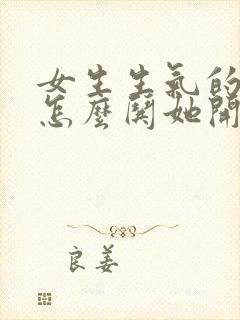 女生生氣的
怎麼鬨她開
良姜